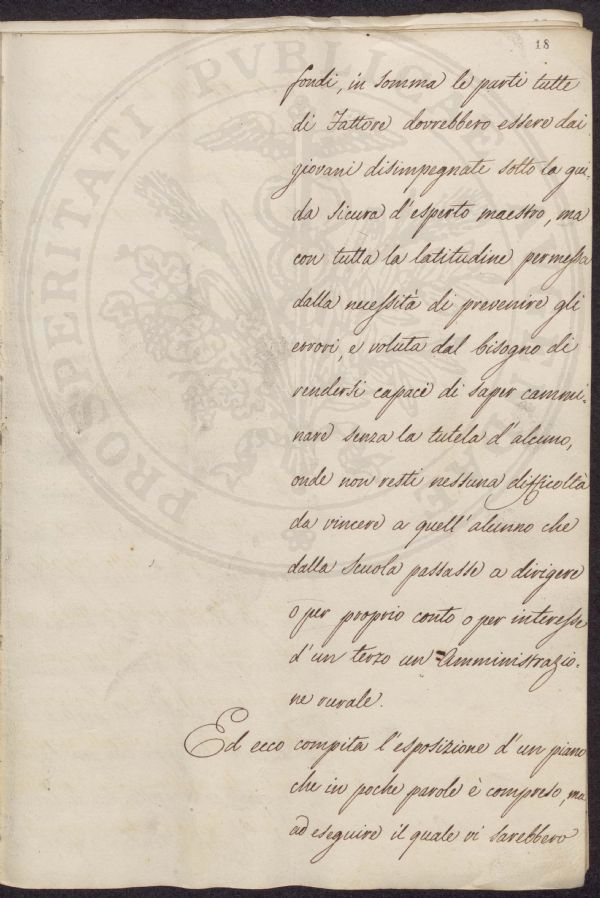 18
fondi, in somma le parti tutte
di Fattore dovrebbero essere dai
giovani disimpegnate sotto la gui-
da sicura d'esperto maestro, ma
con tutta la latitudine permessa
dalla necessità di prevenire gli
errori, e voluta dal bisogno di
rendersi capace di saper cammi-
nare senza la tutela d'alcuno,
onde non resti nessuna difficoltà
da vincere a quell'alunno che
dalla scuola passasse a dirigere
o per proprio conto o per interesse
d'un terzo un'Amministrazio-
ne rurale.
Ed ecco compita l'esposizione d'un piano
che in poche parole è compreso, ma
ad eseguire il quale vi sarebbero